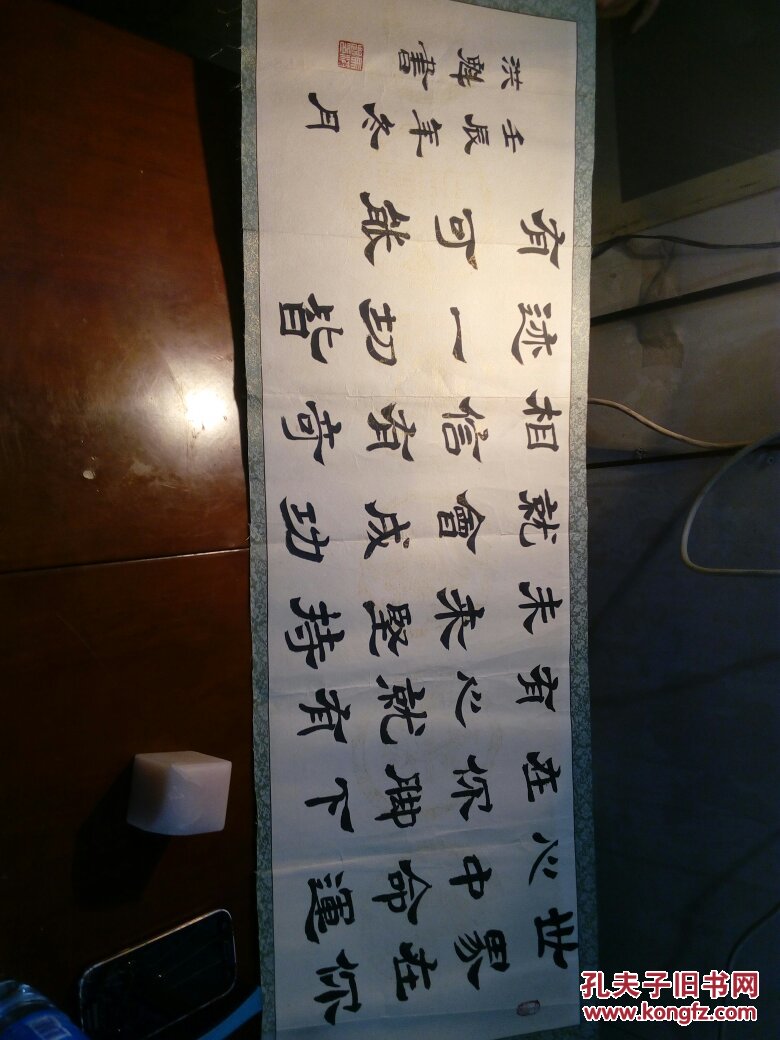 世界在你
心中命運
在你脚下
有心就有
未来堅持
就會成功
相信有奇
迹一切皆
有可能
壬辰年冬月
洪書
孔夫子旧书网
www.kongfz.com